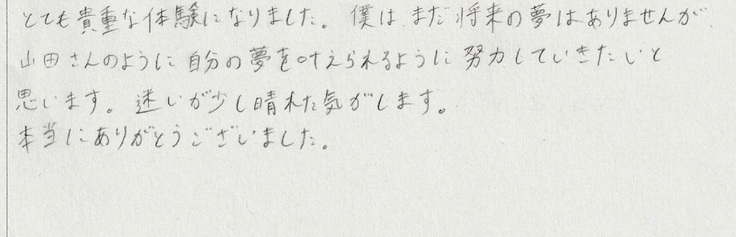 とても貴重な体験になりました。僕はまだ将来の夢はありませんが、
山田さんのように自分の夢を叶えられるように努力していきたいと
思います。迷いが少し晴れた気がします。
本当にありがとうございました。